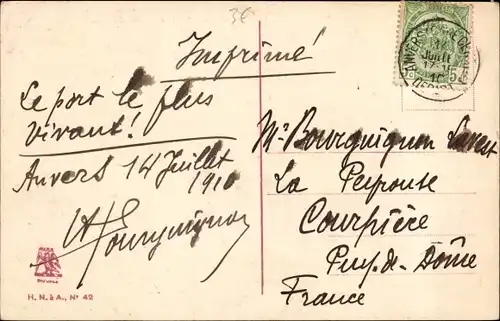 3€
Imprimé!
Le port le plus
vivant!
Anvers 14 Juillet
1910
Bourguignon
H. N. & A., Nº 42
ANVERS
14
JUIL
17-18
10
5
Mr Bourguignon
La Peyrouse
Courpière
Puy-de-Dôme
France